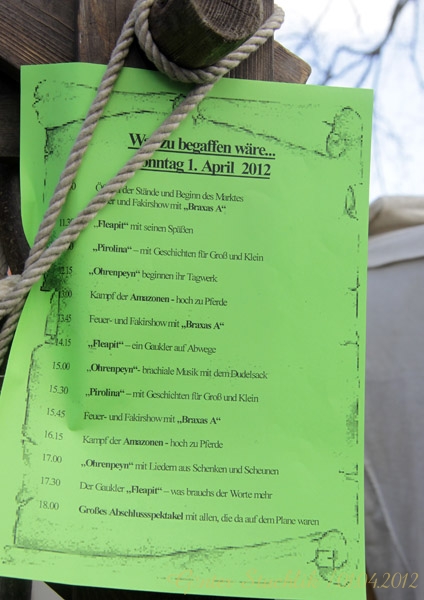 zu begaffen wäre...
Sonntag 1. April 2012
der Stände und Beginn des Marktes
und Fakirshow mit „Braxas A“
11.30 „Fleapit“ mit seinen Späßen
„Pirolina“ – mit Geschichten für Groß und Klein
12.15 „Ohrenpeyn“ beginnen ihr Tagwerk
13.00 Kampf der Amazonen - hoch zu Pferde
13.45 Feuer- und Fakirshow mit „Braxas A“
14.15 „Fleapit“ – ein Gaukler auf Abwege
15.00 „Ohrenpeyn“- brachiale Musik mit dem Dudelsack
15.30 „Pirolina“ – mit Geschichten für Groß und Klein
15.45 Feuer- und Fakirshow mit „Braxas A“
16.15 Kampf der Amazonen - hoch zu Pferde
17.00 „Ohrenpeyn“ mit Liedern aus Schenken und Scheunen
17.30 Der Gaukler „Fleapit“ – was brauchs der Worte mehr
18.00 Großes Abschlussspektakel mit allen, die da auf dem Plane waren